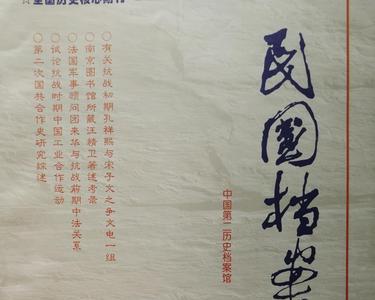 ☆全国历史核心期刊
民國档案
中国第二历史档案馆
○有关抗战初期孔祥熙与宋子文之争文电一组
○南京图书馆所藏汪精卫著述考录
○法国军事顾问团来华与抗战前期中法关系
○试论抗战时期中国工业合作运动
○第二次国共合作史研究综述